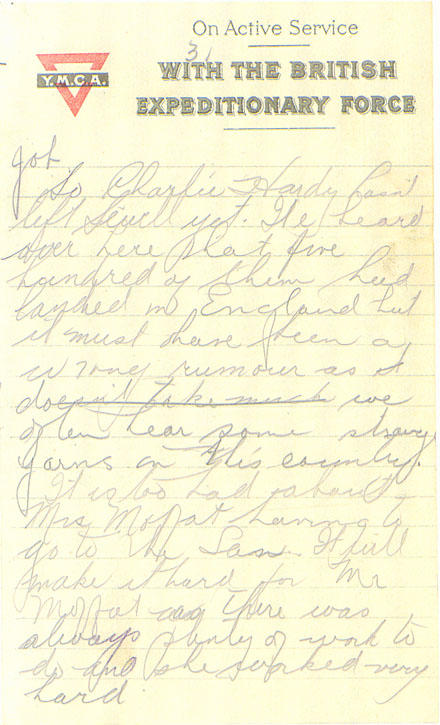 On Active Service
3,
Y.M.C.A.
WITH THE BRITISH
EXPEDITIONARY FORCE
job.
So Charlie Hardy hasn't
left yet. We heard
over here that five
hundred of them had
landed in England but
it must have been a
wrong rumour as it
doesn't take much we
often hear some strange
yarns in this country.
It is too bad about
Mrs Moffat having to
go to the San. It will
make it hard for Mr
Moffat as there was
always plenty of work to
do and she worked very
hard.